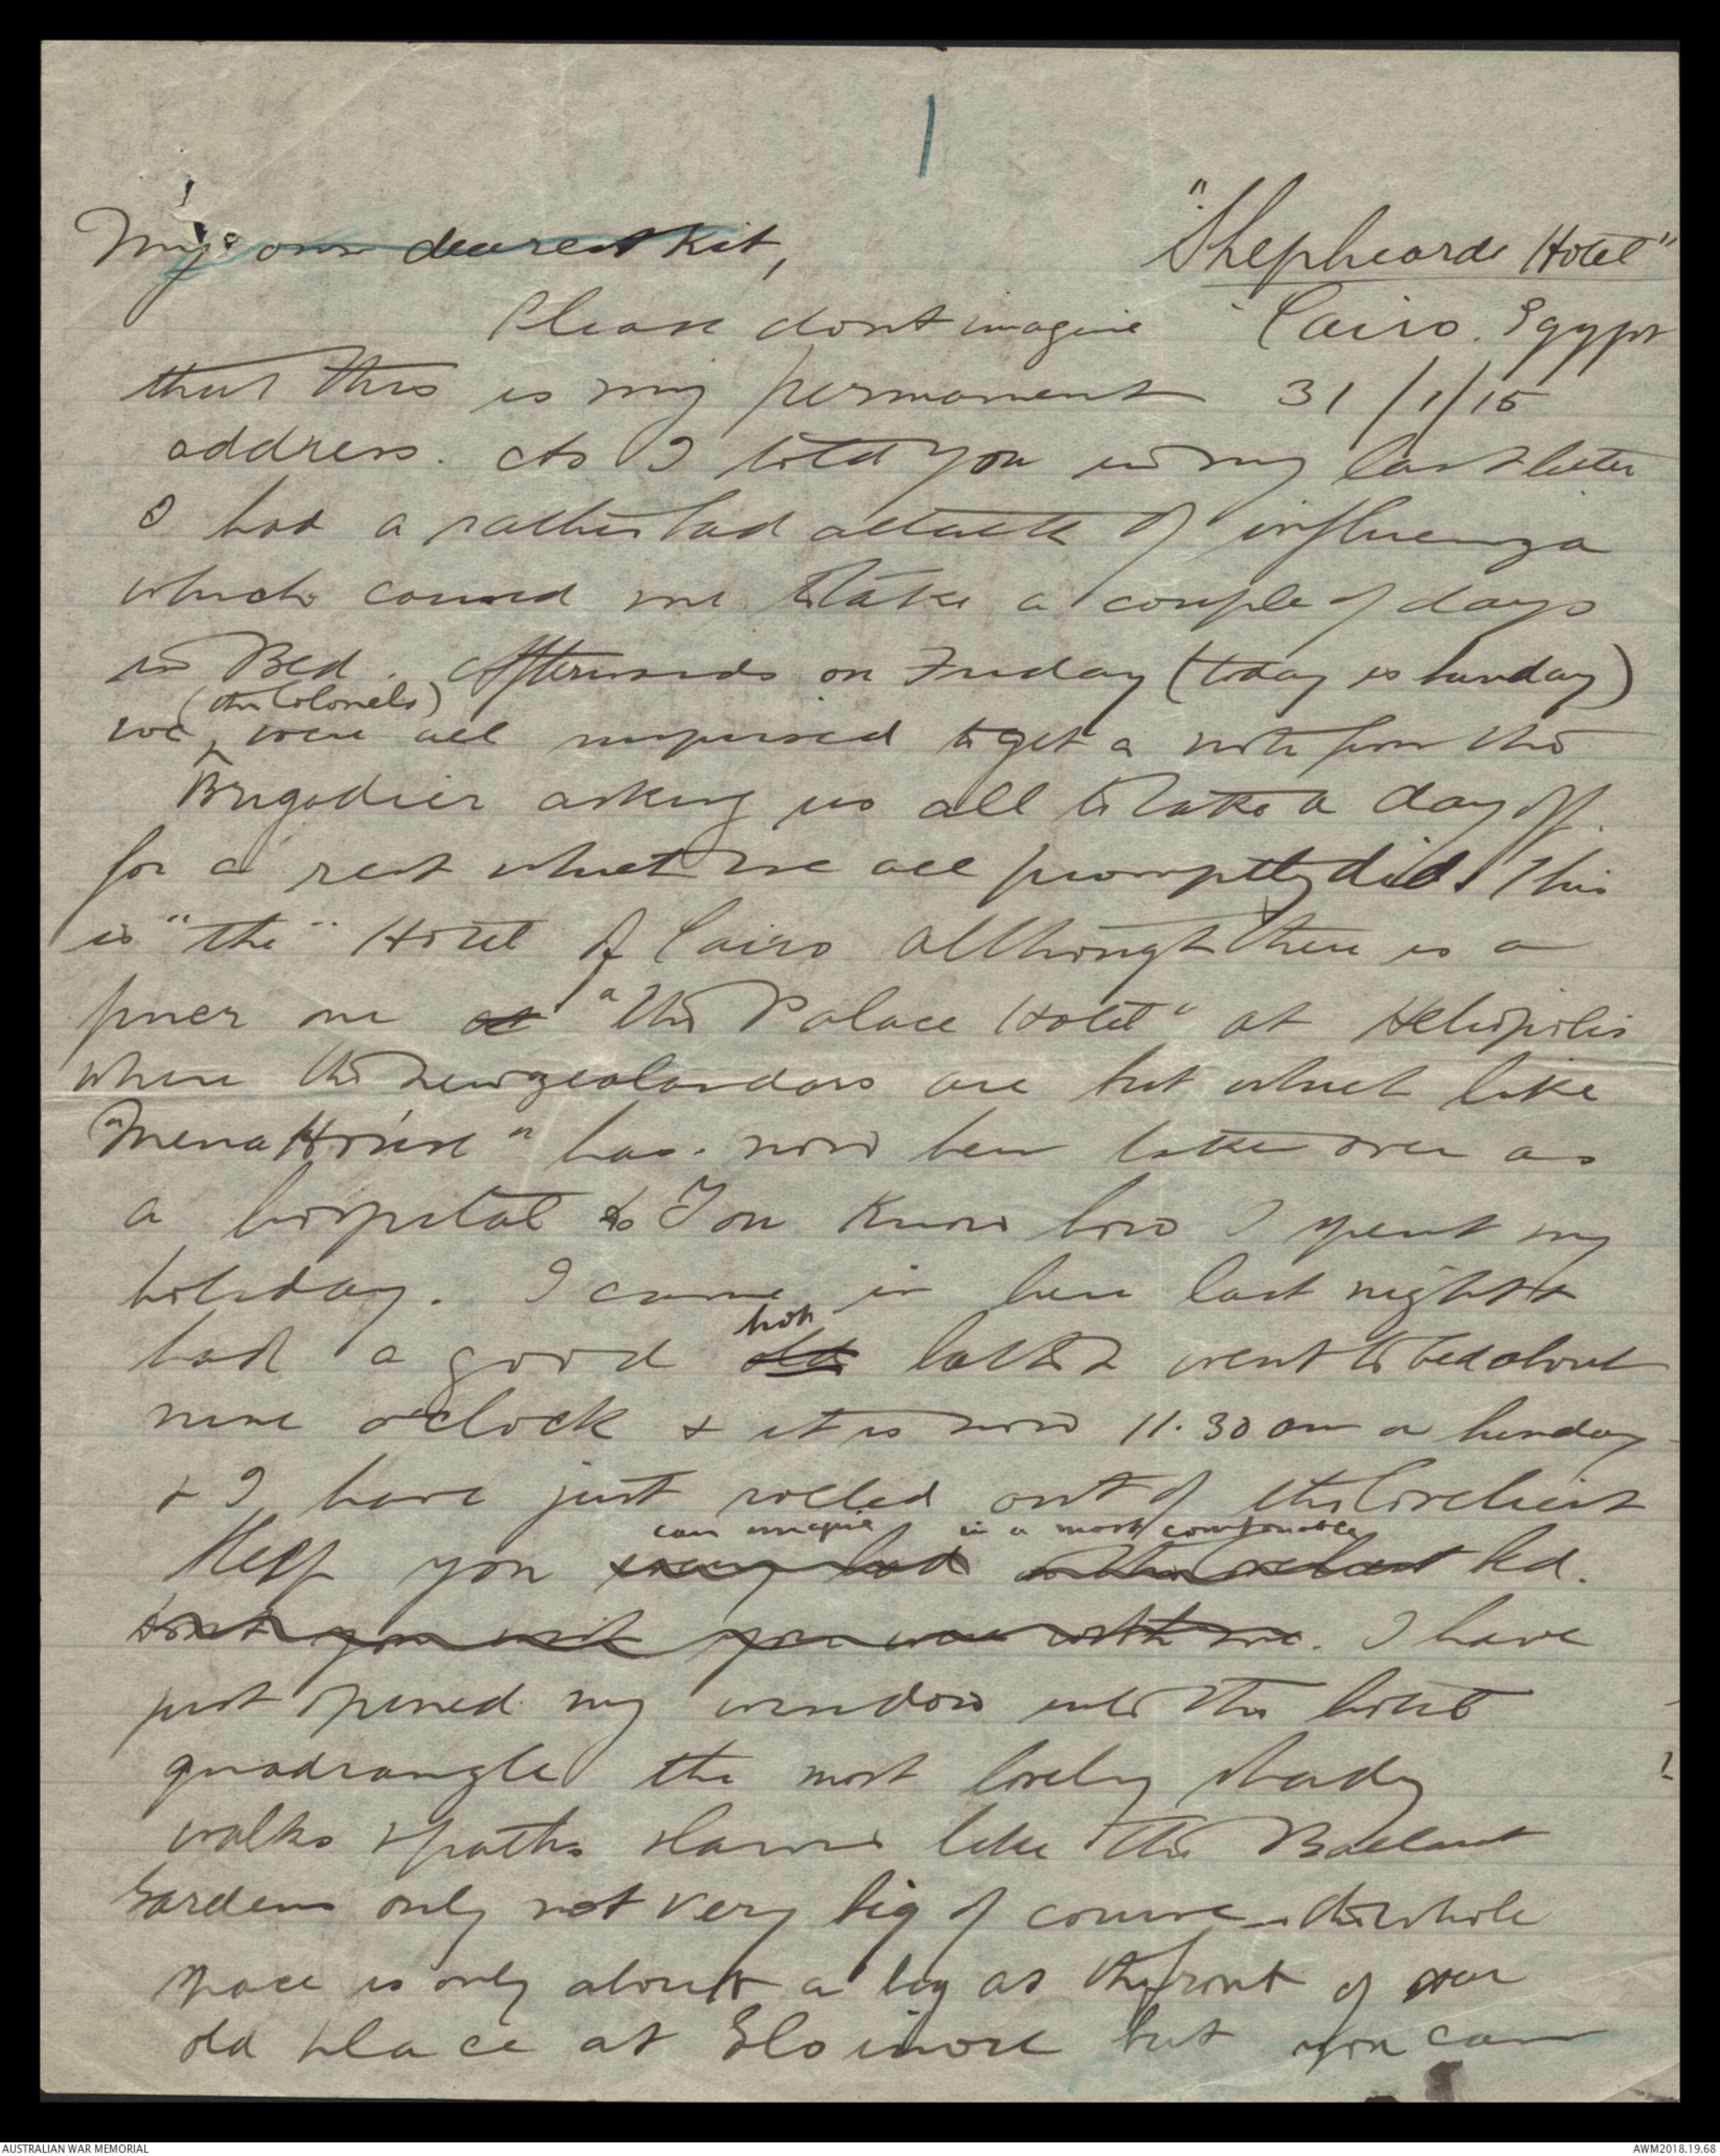 1
My own dearest Kit,
"Shepheards Hotel"
Cairo. Egypt
31/1/15
Please dont imagine
that this is my permanent
address. As I told you in my last letter
I had a rather bad attack of influenza
which caused me to take a couple of days
in Bed. Afterwards on Friday (today is Sunday)
(the Colonels)
we ^ were all surprised to get a note from the
Brigadier asking us all to take a day off
for a rest which we all promptly did. This
is "the" Hotel of Cairo although there is a
finer one at "The Palace Hotel" at Heliopolis
where the Newzealanders are but which like
"Mena House" has now been taken over as
a hospital so You know how I spent my
holiday. I came in here last night &
hot
had a good bath & went to bed about
nine o'clock & it is now 11.30 am on Sunday
& I have just rolled out of the loveliest
can imagine in a most comfortable
sleep you bed.
dont you wish you were with me. I have
just opened my window into the hotel
quadrangle the most lovely shady
walks & paths & lawns like the Ballarat
Gardens only not very big of course - the whole
space is only about as big as the front of our
old place at Elsinore but you can
AUSTRALIAN WAR MEMORIAL
AWM2018.19.68